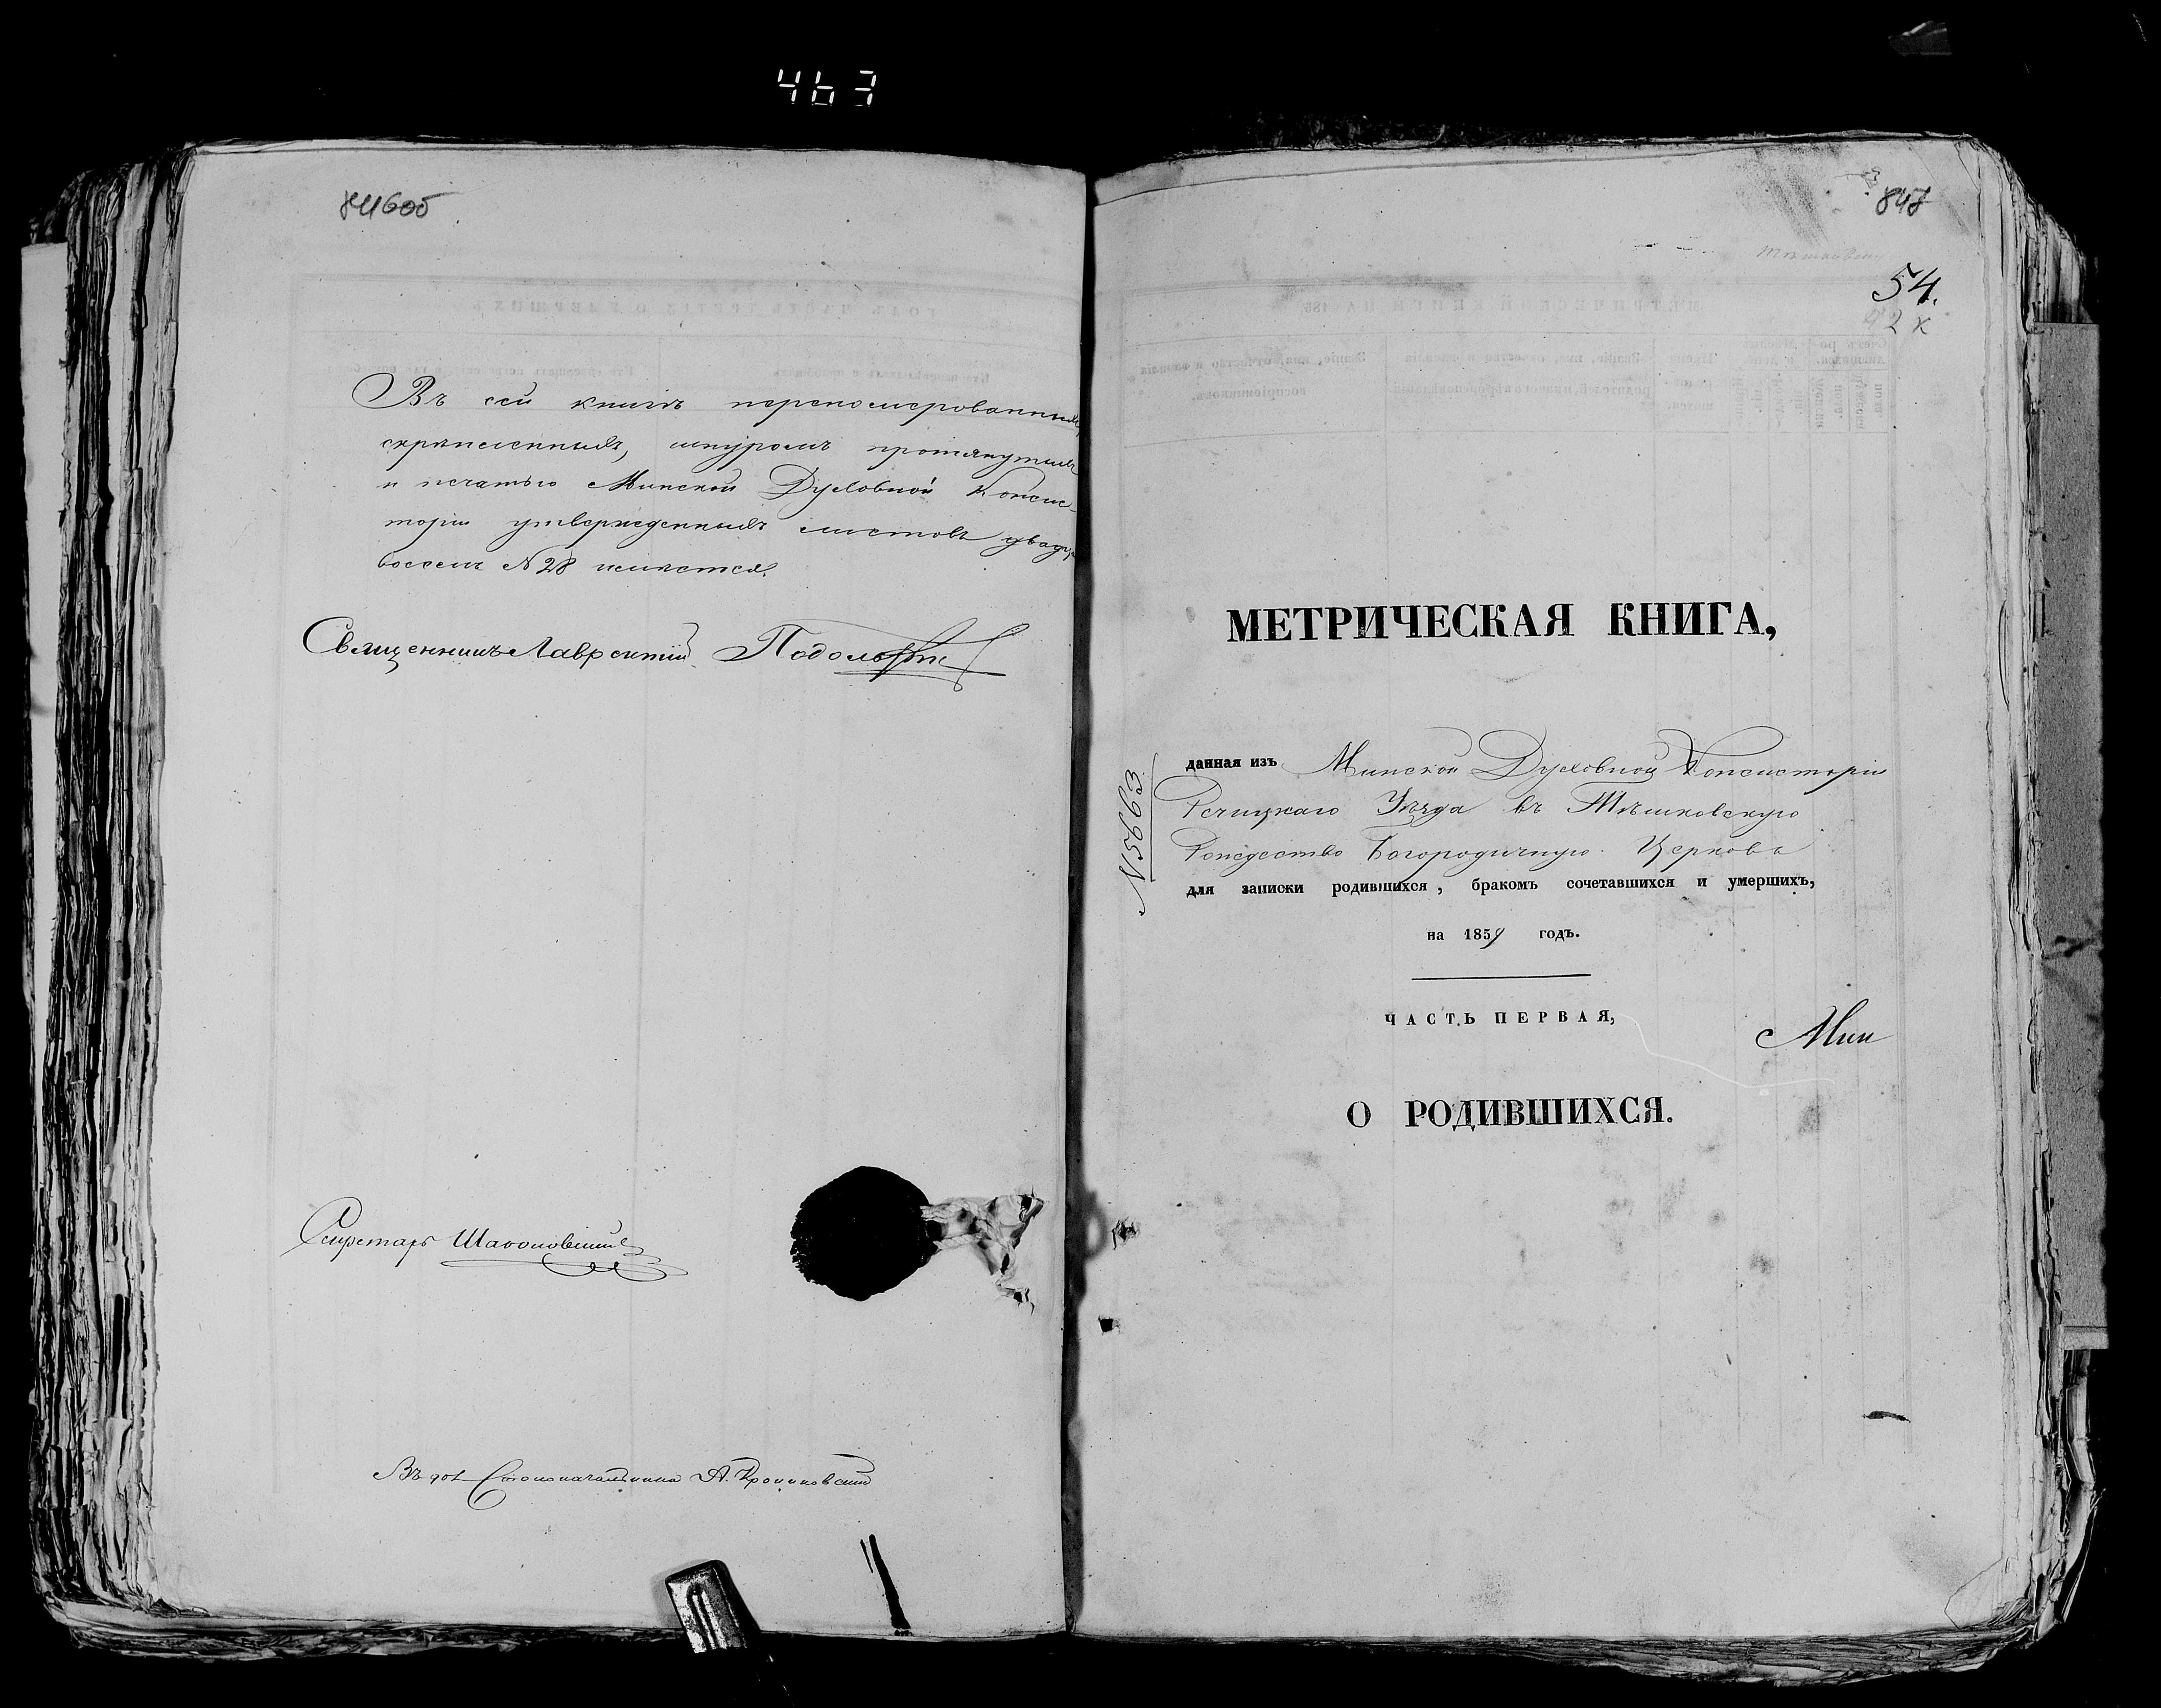 463
846об
Въ сей книгѣ перенумерованныхъ,
скрѣпленныхъ, шнуромъ протянутыхъ
и печатью Минской Духовной Консис-
торіи утвержденныхъ листовъ двадца
восемь N 28 имѣется.
Священникъ Лаврентій
Секретарь
Въ дол Столоначальника А.
847
54.
2 к
МЕТРИЧЕСКАЯ КНИГА,
данная изъ Минской Духовной Консисторіи
Речицкаго Уѣзда въ Тѣшковскую
Рождество Богородичную Церковь
для записки родившихся, бракомъ сочетавшихся и умершихъ,
на 1859 годъ.
ЧАСТЬ ПЕРВАЯ,
Мин
О РОДИВШИХСЯ.